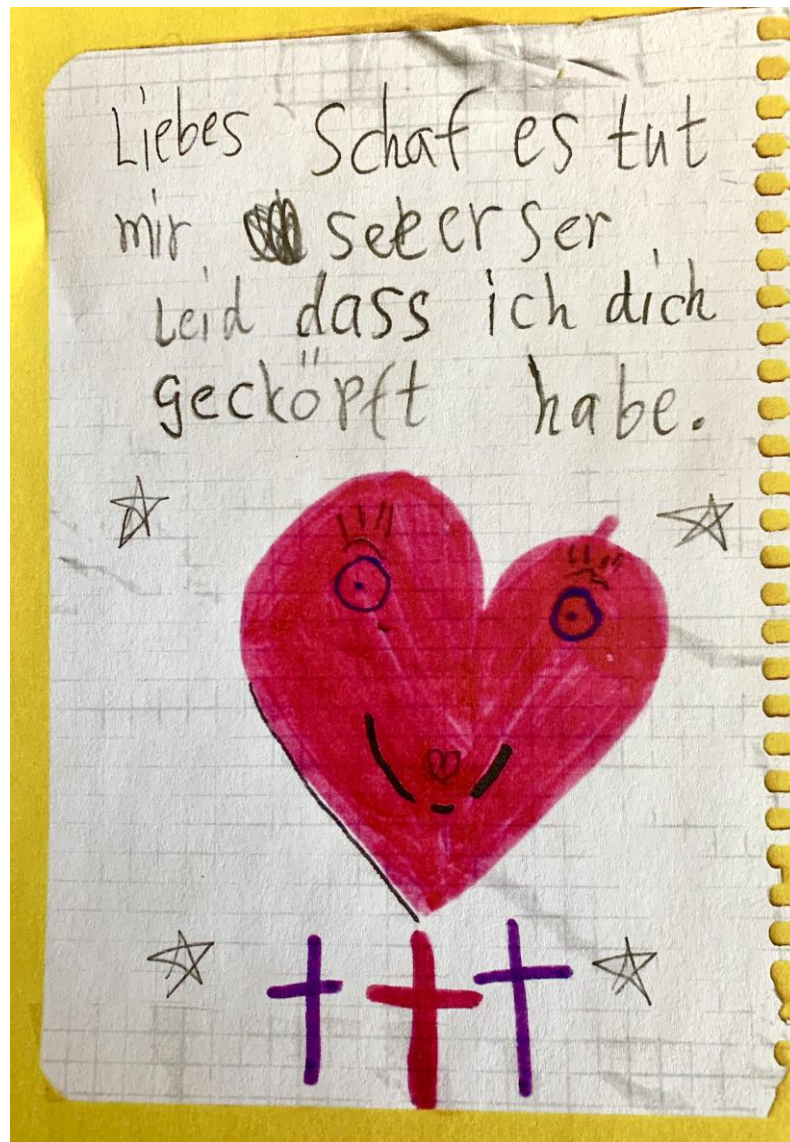 Liebes Schaf es tut
mir seeerser
Leid dass ich dich
geckópft habe.